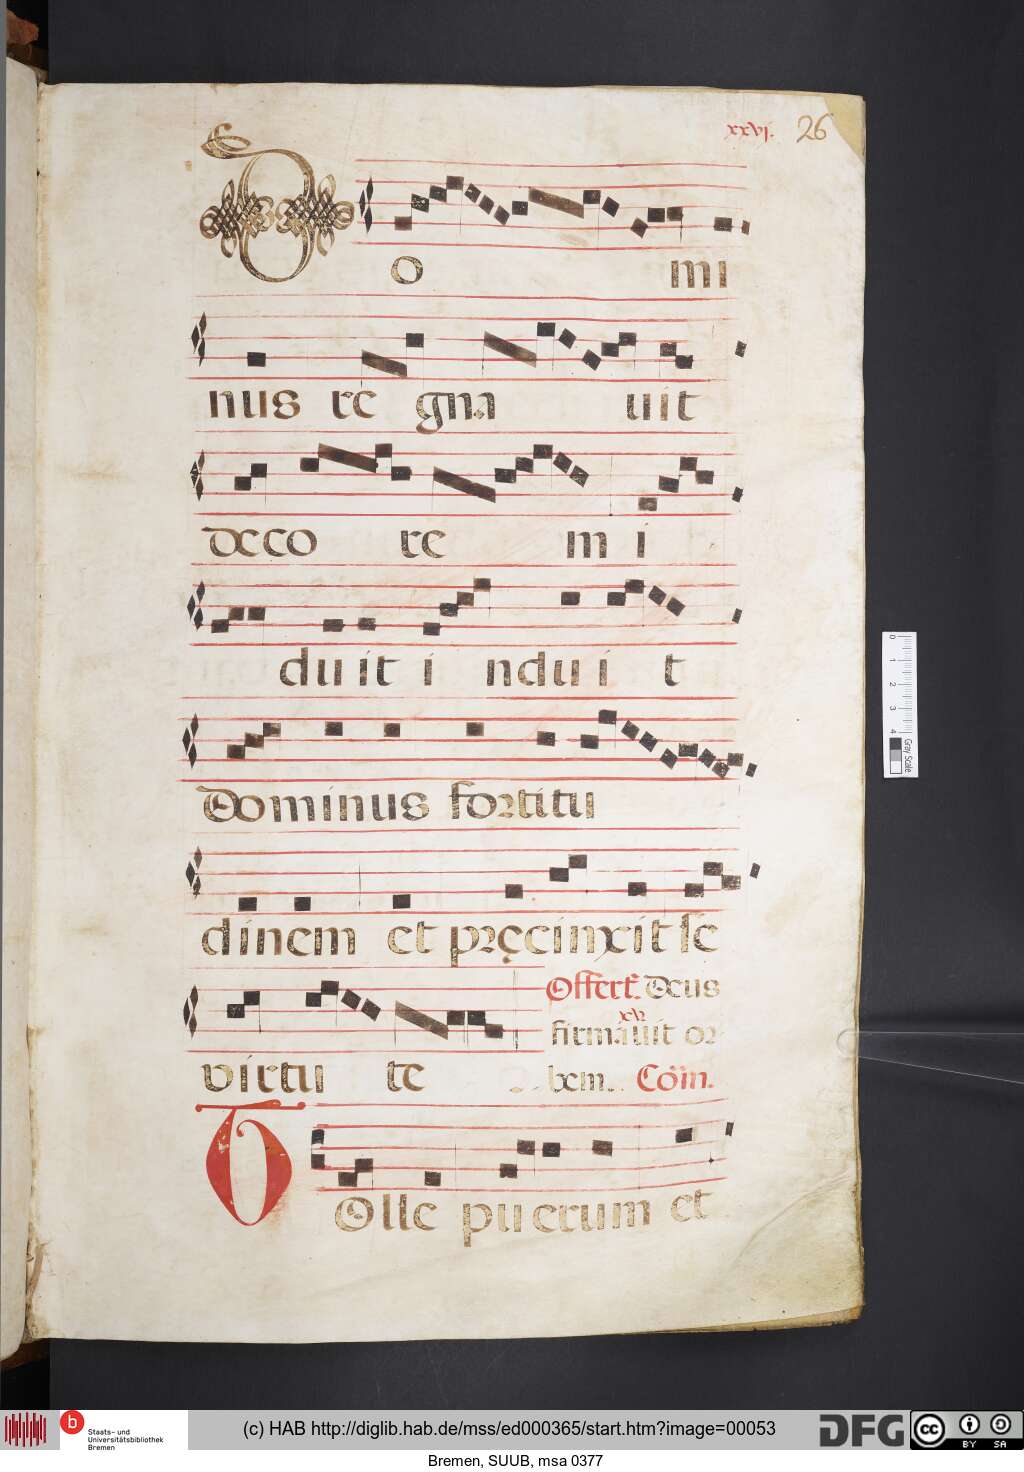 xxvj. 26
DO mi
nus re gna uit
deco re in i
duit i ndui t
Dominus fortitu
dinem et pręcinxit se
virtu te
Offert. Deus
xij
firmauit or
bem. Com.
TOlle puerum et
0 1 2 3 4
Gray Scale
b Staats- und
Universitätsbibliothek
Bremen
(c) HAB http://diglib.hab.de/mss/ed000365/start.htm?image=00053
DFG cc BY SA
Bremen, SUUB, msa 0377